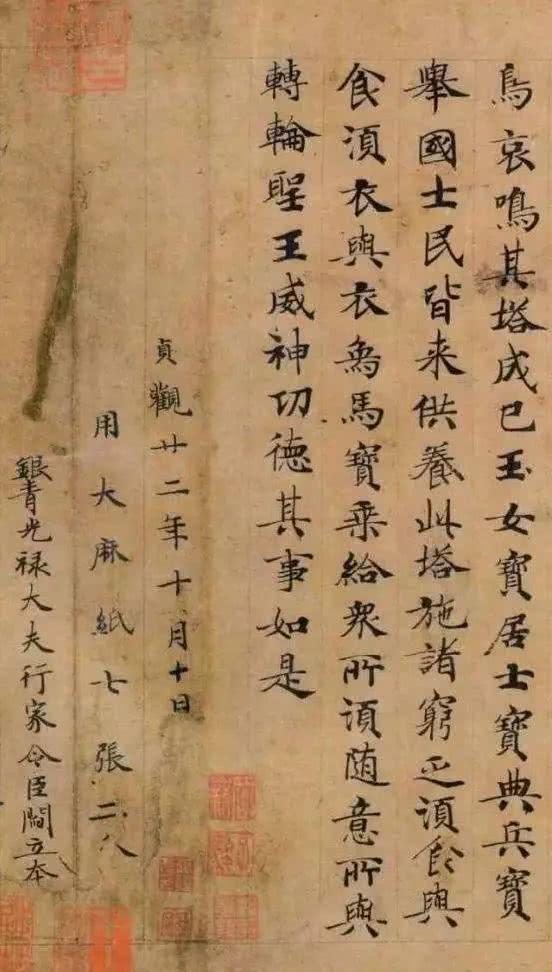 鳥哀鳴其塔成已玉女寶居士寶典兵寶
舉國士民皆来供養此塔施諸窮乏湏食與
食湏衣與衣烏馬寶乗給衆所湏随意所與
轉輪聖王威神功徳其事如是
貞觀廿二年十月十日
用大麻紙七張二分
銀青光禄大夫行家令臣閻立本